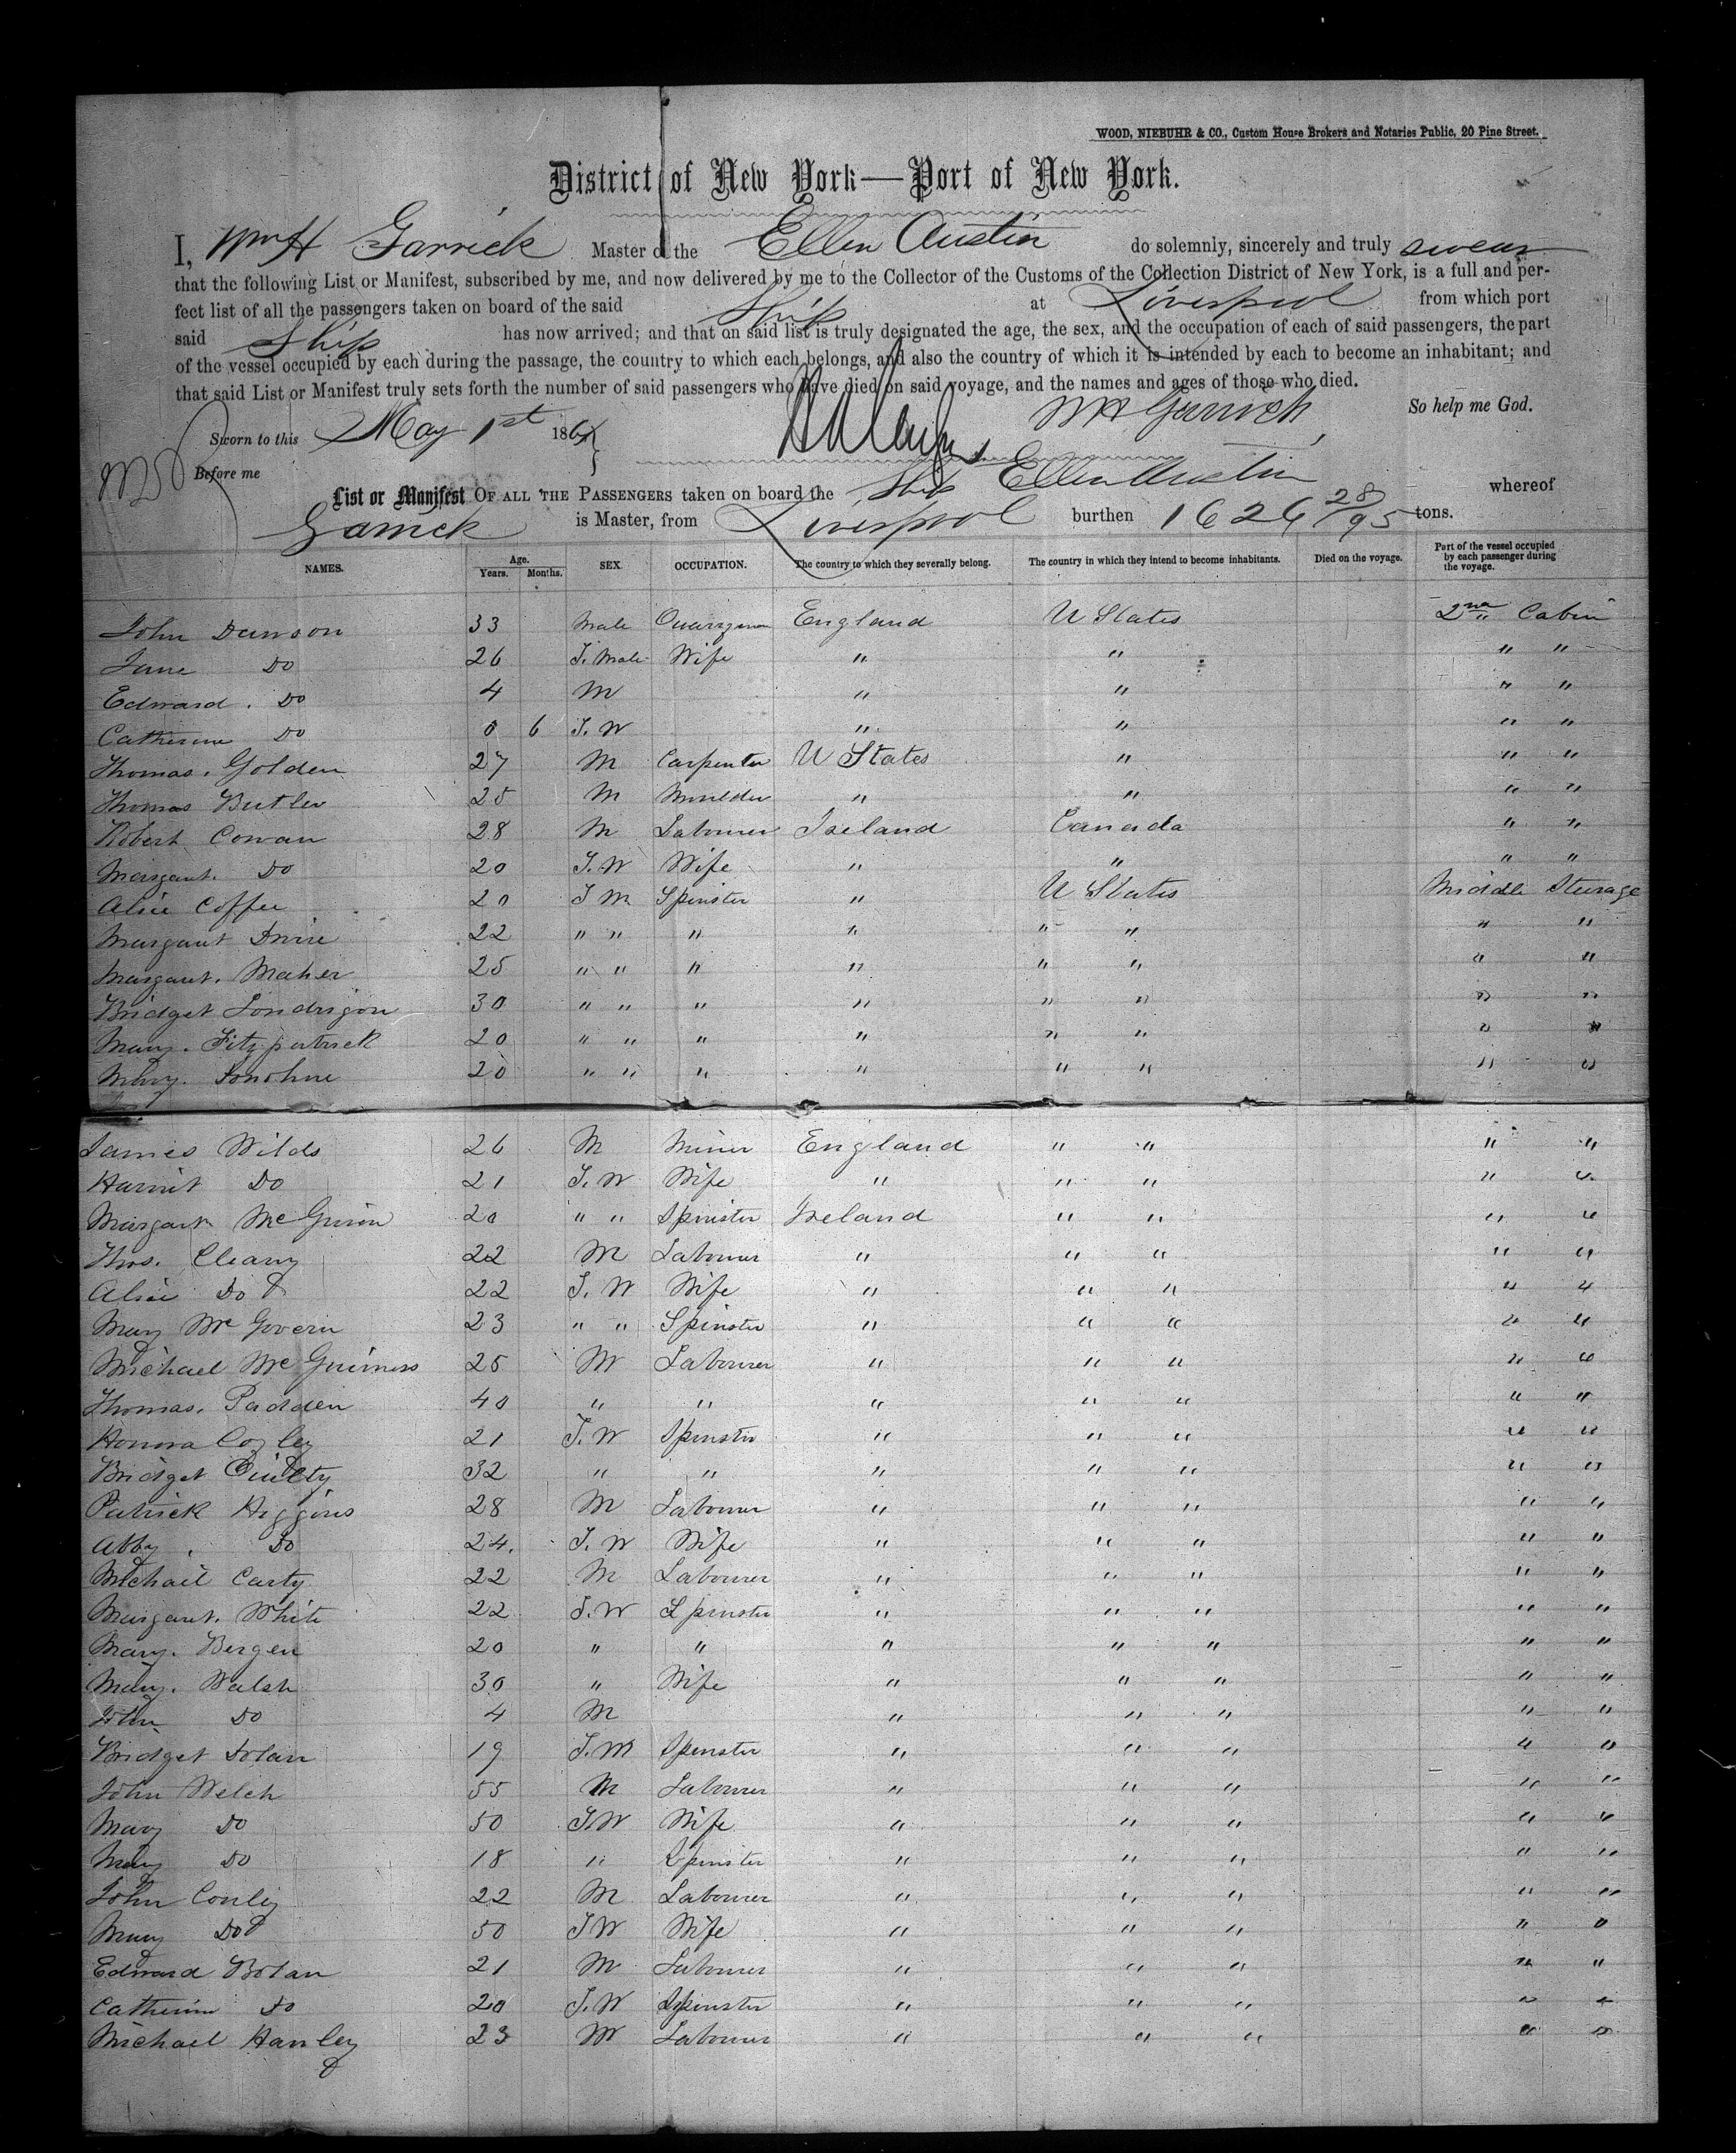 WOOD, NIEBUHR & CO., Custom House Brokers and Notaries Public, 20 Pine Street.
District of New York—Port of New York.
I, Wm H Garrick Master of the Ellen Austin do solemnly, sincerely and truly swear
that the following List or Manifest, subscribed by me, and now delivered by me to the Collector of the Customs of the Collection District of New York, is a full and per-
fect list of all the passengers taken on board of the said Ship at Liverpool from which port
said Ship has now arrived; and that on said list is truly designated the age, the sex, and the occupation of each of said passengers, the part
of the vessel occupied by each during the passage, the country to which each belongs, and also the country of which it is intended by each to become an inhabitant; and
that said List or Manifest truly sets forth the number of said passengers who have died on said voyage, and the names and ages of those who died.
WH Garrick So help me God.
Sworn to this May 1st 186
Before me
List or Manifest OF ALL THE PASSENGERS taken on board the Ship Ellen Austin whereof
Garrick is Master, from Liverpool burthen 1626 28/95 tons.
NAMES. Age. Years. Months. SEX. OCCUPATION. The country to which they severally belong. The country in which they intend to become inhabitants. Died on the voyage. Part of the vessel occupied by each passenger during the voyage.
John Dawson 33 Male Quarryman England U States 2nd Cabin
Jane Do 26 F. Male Wife " " " "
Edward. Do 4 M " " " "
Catherine Do 0 6 F. M " " " "
Thomas. Golden 27 M Carpenter U States " " "
Thomas Butler 25 M Moulder " " " "
Robert Cowan 28 M Labourer Ireland Canada " "
Margaret. Do 20 F. M Wife " " " "
Alice Coffee 20 F M Spinster " U States Middle Steerage
Margaret 22 " " " " " " " "
Margaret. Maher 25 " " " " " " " "
Bridget Londrigon 30 " " " " " " " "
Mary. Fitzpatrick 20 " " " " " " " "
Mary. Donohue 20 " " " " " " " "
James Wilds 26 M Miner England " " " "
Harriet Do 21 F. M Wife " " " " "
Margaret 20 " " Spinster Ireland " " " "
Thos. Cleary 22 M Labourer " " " " "
Alice Do 22 F. M Wife " " " " "
Mary McGovern 23 " " Spinster " " " " "
Michael McGuinness 25 M Labourer " " " " "
Thomas. Padden 40 " " " " " " "
Honora 21 F. M Spinster " " " " "
Bridget Quilty 32 " " " " " " "
Patrick Higgins 28 M Labourer " " " " "
Abby. Do 24. F. M Wife " " " " "
Michael Carty 22 M Labourer " " " " "
Margaret. White 22 F. M Spinster " " " " "
Mary. Bergen 20 " " " " " " "
Mary. Walsh 30 " Wife " " " " "
John Do 4 M " " " " "
Bridget Dolan 19 F. M Spinster " " " " "
John Welch 55 M Labourer " " " " "
Mary Do 50 F. M Wife " " " " "
Mary Do 18 " Spinster " " " " "
John Conley 22 M Labourer " " " " "
Mary Do 50 F M Wife " " " " "
Edward Bolan 21 M Labourer " " " " "
Catherine Do 20 F. M Spinster " " " " "
Michael Hanley 23 M Labourer " " " " "